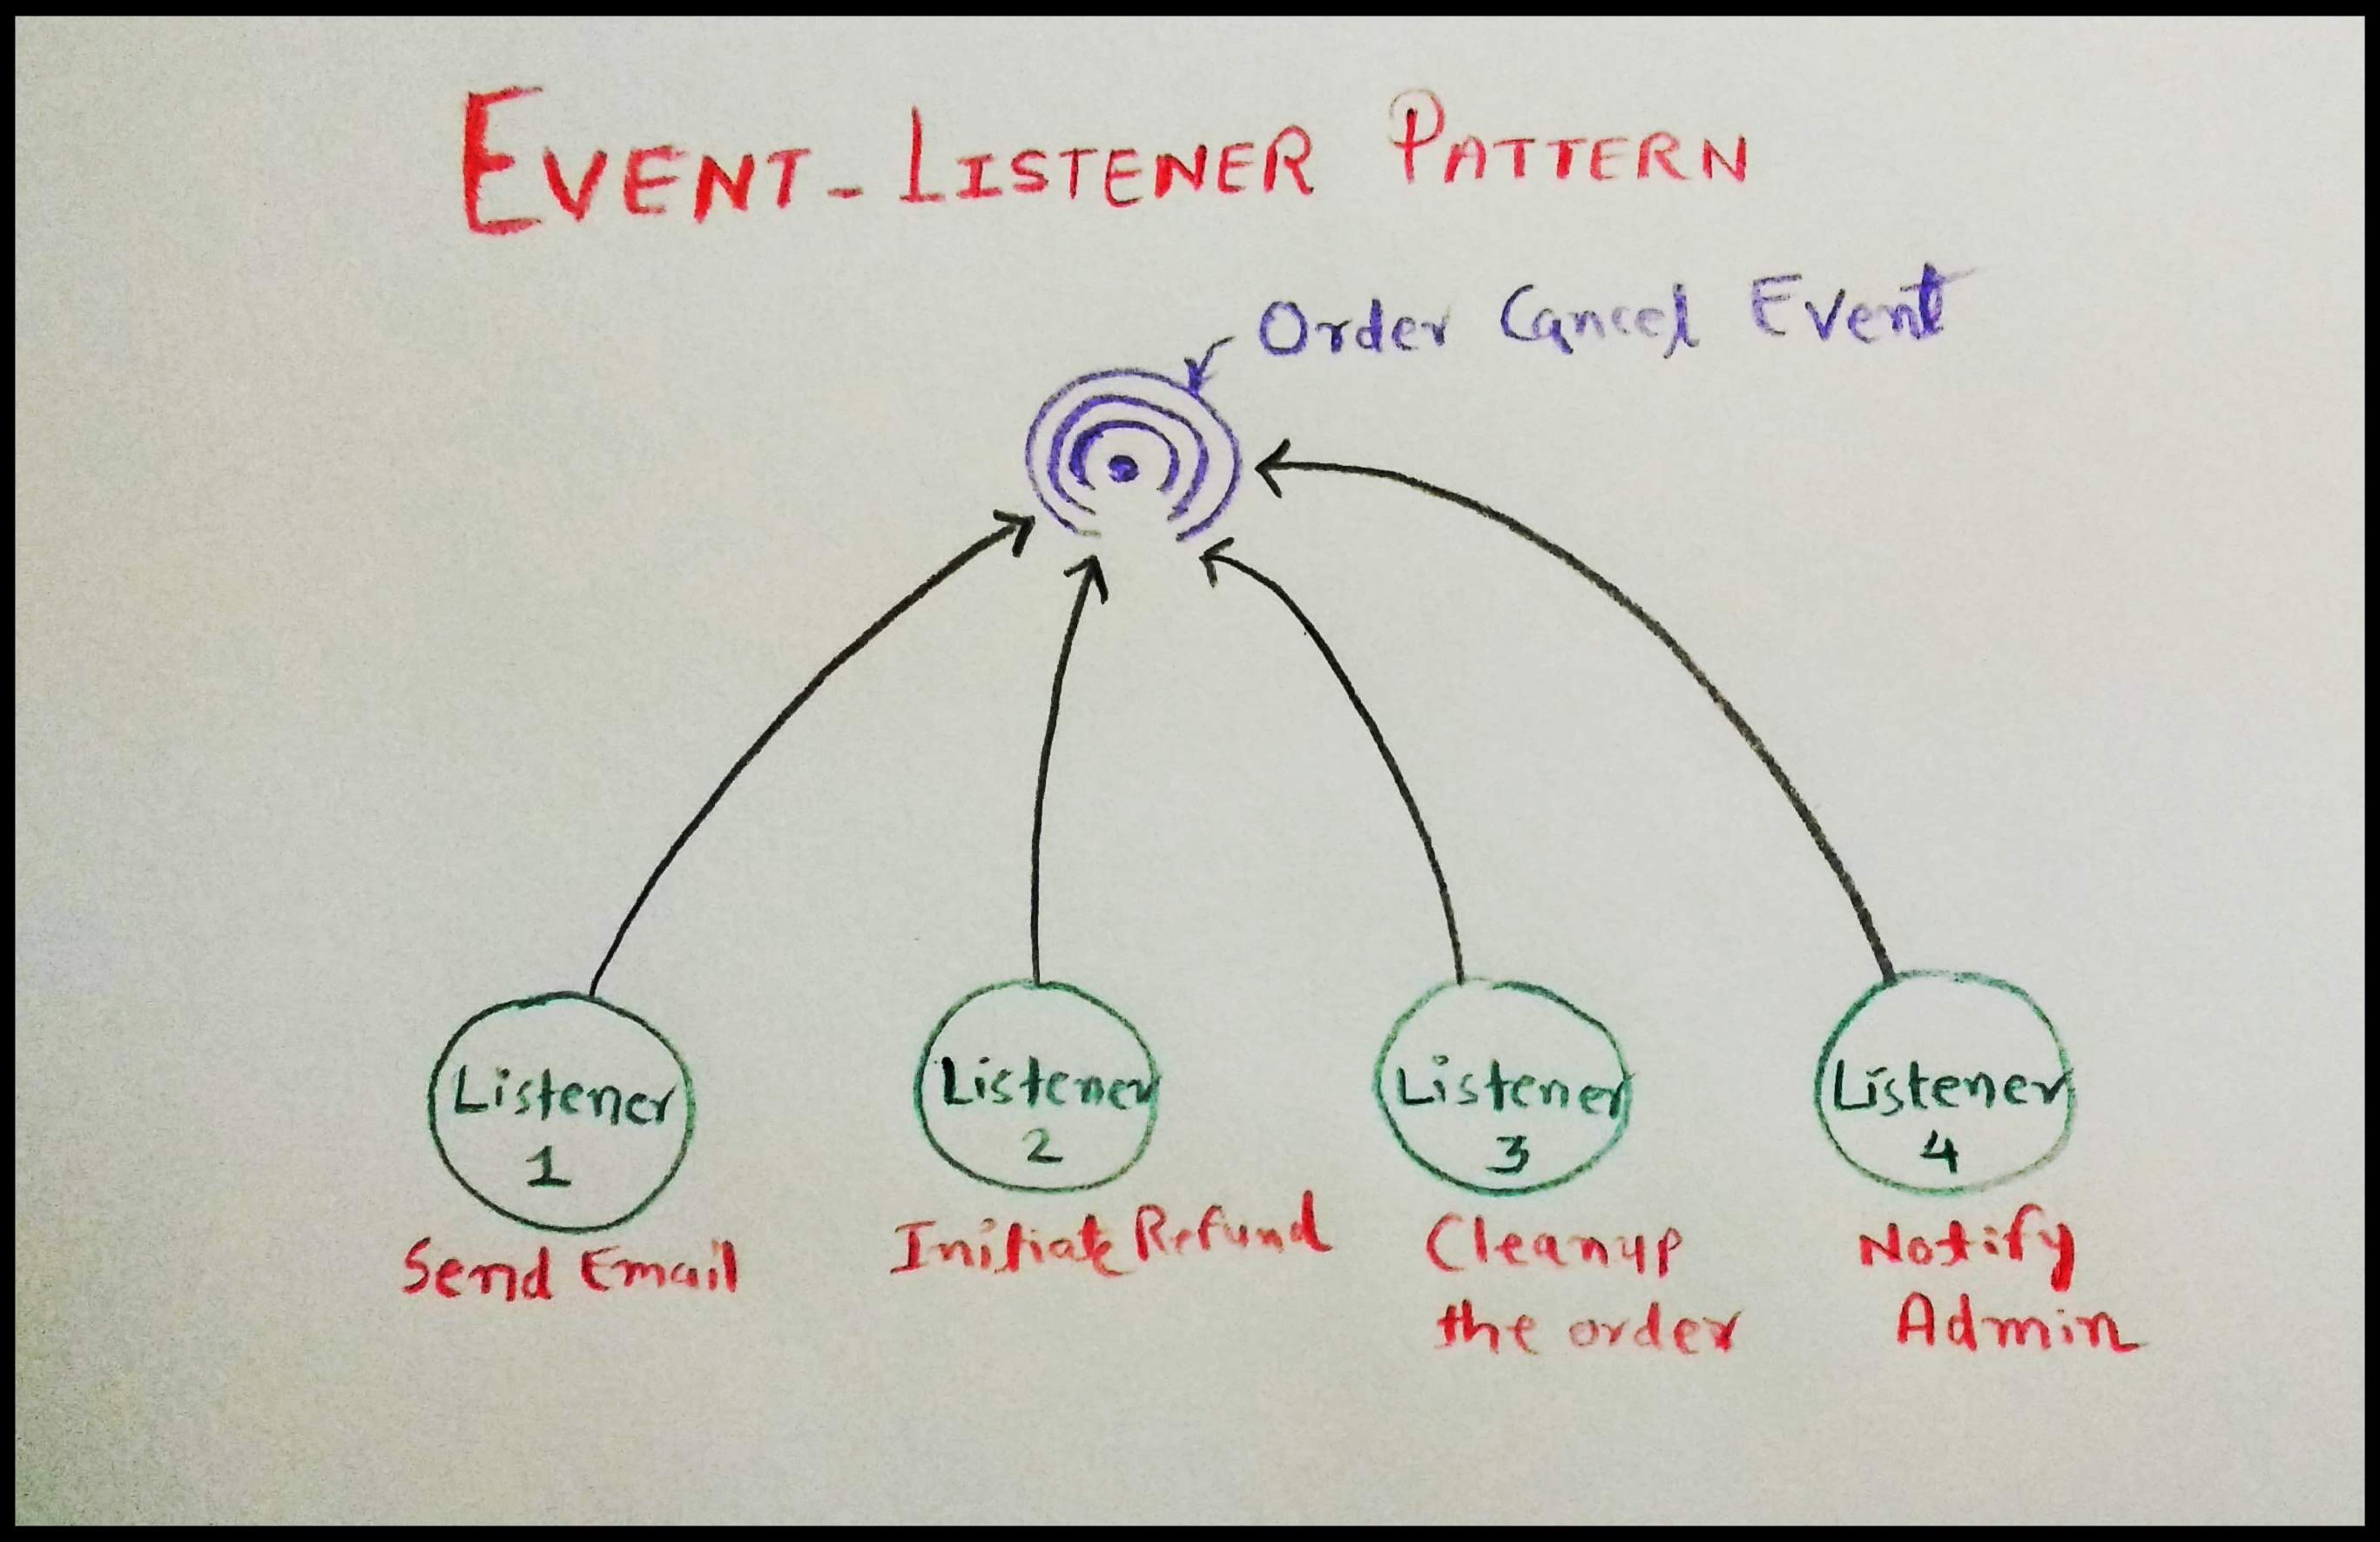 EVENT-LISTENER PATTERN
Order Cancel Event
Listener
1
Send Email
Listener
2
Initiate Refund
Listener
3
Cleanup
the order
Listener
4
Notify
Admin